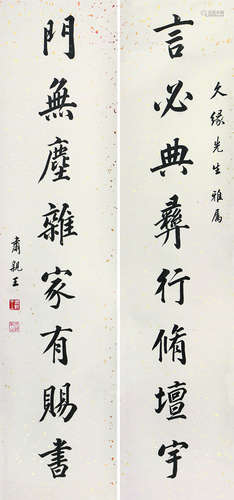 久缘先生雅属
言必典彝行脩壇宇
門無塵雜家有賜書
肅親王